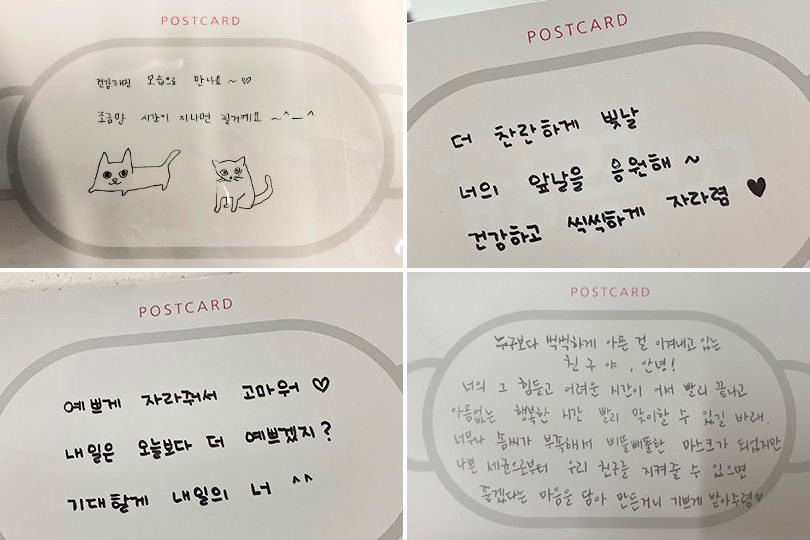 POSTCARD
건강해진 모습으로 만나요~♡
조금만 시간이 지나면 될거예요 ~^ㅡ^
POSTCARD
더 찬란하게 빛날
너의 앞날을 응원해~
건강하고 씩씩하게 자라렴 ♥
POSTCARD
예쁘게 자라줘서 고마워♡
내일은 오늘보다 더 예쁘겠지?
기대할게 내일의 너 ^^
POSTCARD
누구보다 씩씩하게 아픈 걸 이겨내고 있는
친구야, 안녕!
너의 그 힘들고 어려운 시간이 어서 빨리 끝나고
아픔없는 행복한 시간 빨리 맞이할 수 있길 바래.
너무나 솜씨가 부족해서 삐뚤빼뚤한 마스크가 되었지만
나쁜 세균으로부터 우리 친구를 지켜줄 수 있으면
좋겠다는 마음을 담아 만든거니 기쁘게 받아주렴♡